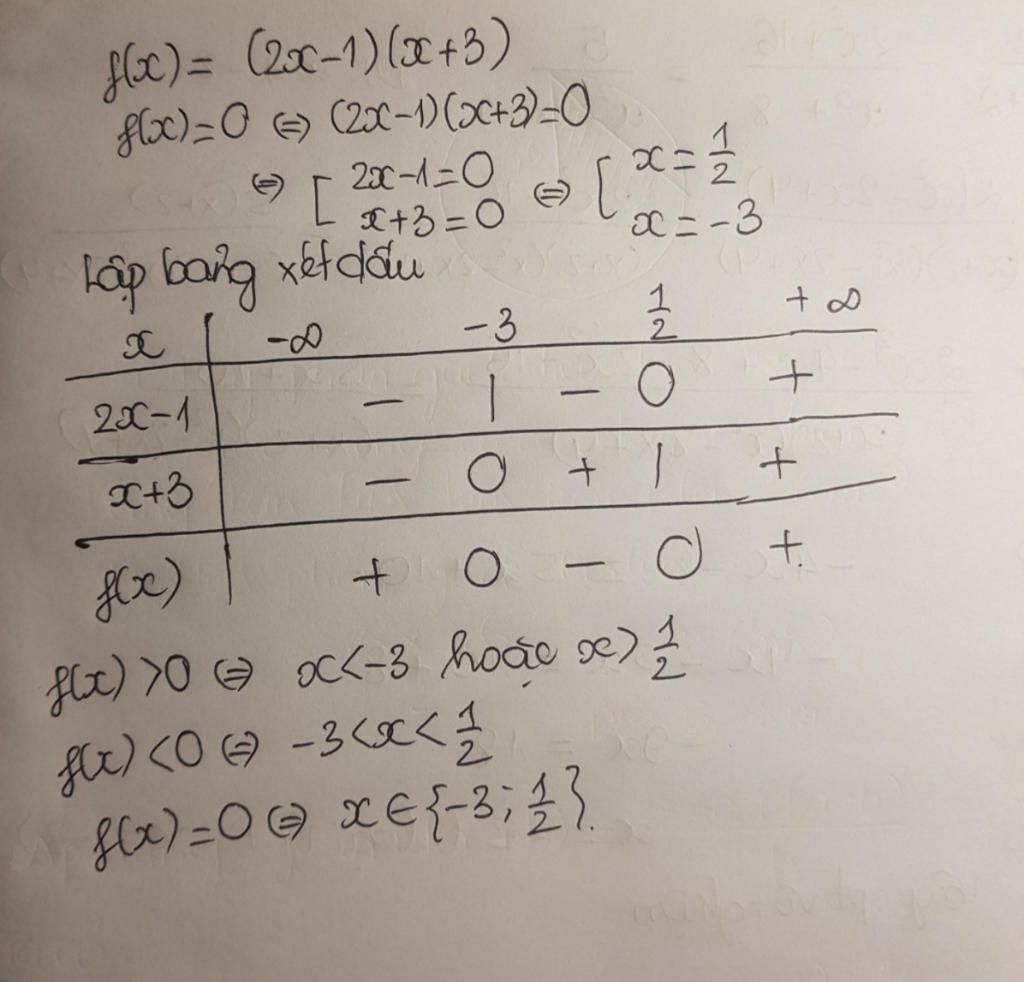 f(x) = (2x-1)(x+3)
f(x)=0 ⇔ (2x-1)(x+3)=0
⇔ [ 2x-1=0 ⇔ [ x = 1/2
x+3=0 x = -3
Lập bảng xét dấu
x | -∞ -3 1/2 +∞
2x-1 | - | - 0 +
x+3 | - 0 + | +
f(x) | + 0 - 0 +
f(x) >0 ⇔ x<-3 hoặc x> 1/2
f(x) <0 ⇔ -3<x< 1/2
f(x) =0 ⇔ x ∈ {-3; 1/2}.